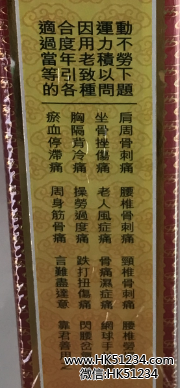 適合因運動
過度用力不
當年老積勞
等引致以下
的各種問題
肩周骨刺痛
坐骨挫傷痛
胸隔背冷痛
瘀血停滯痛
腰椎骨刺痛
老人風症痛
操勞過度痛
周身筋骨痛
頸椎骨刺痛
骨痛濕症痛
跌打扭傷痛
言難盡達意
腰椎勞
網球手
閃腰岔
靠君
https://HK51234.com
微信HK51234